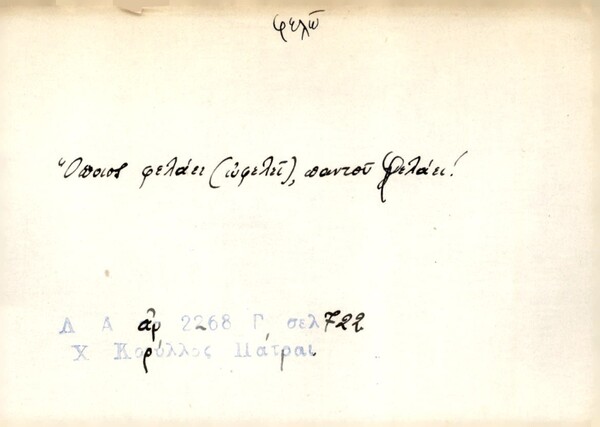 φελῶ
Ὅποιος φελάει (ὠφελεῖ), παντοῦ φελάει!
Λ Α ἀρ 2268 Γ σελ 722
Χ Κορύλλος Πάτραι